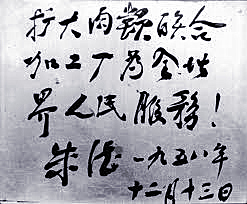 扩大肉類联合
加工厂為全世
界人民服務！
朱德 一九五八年
十二月十三日